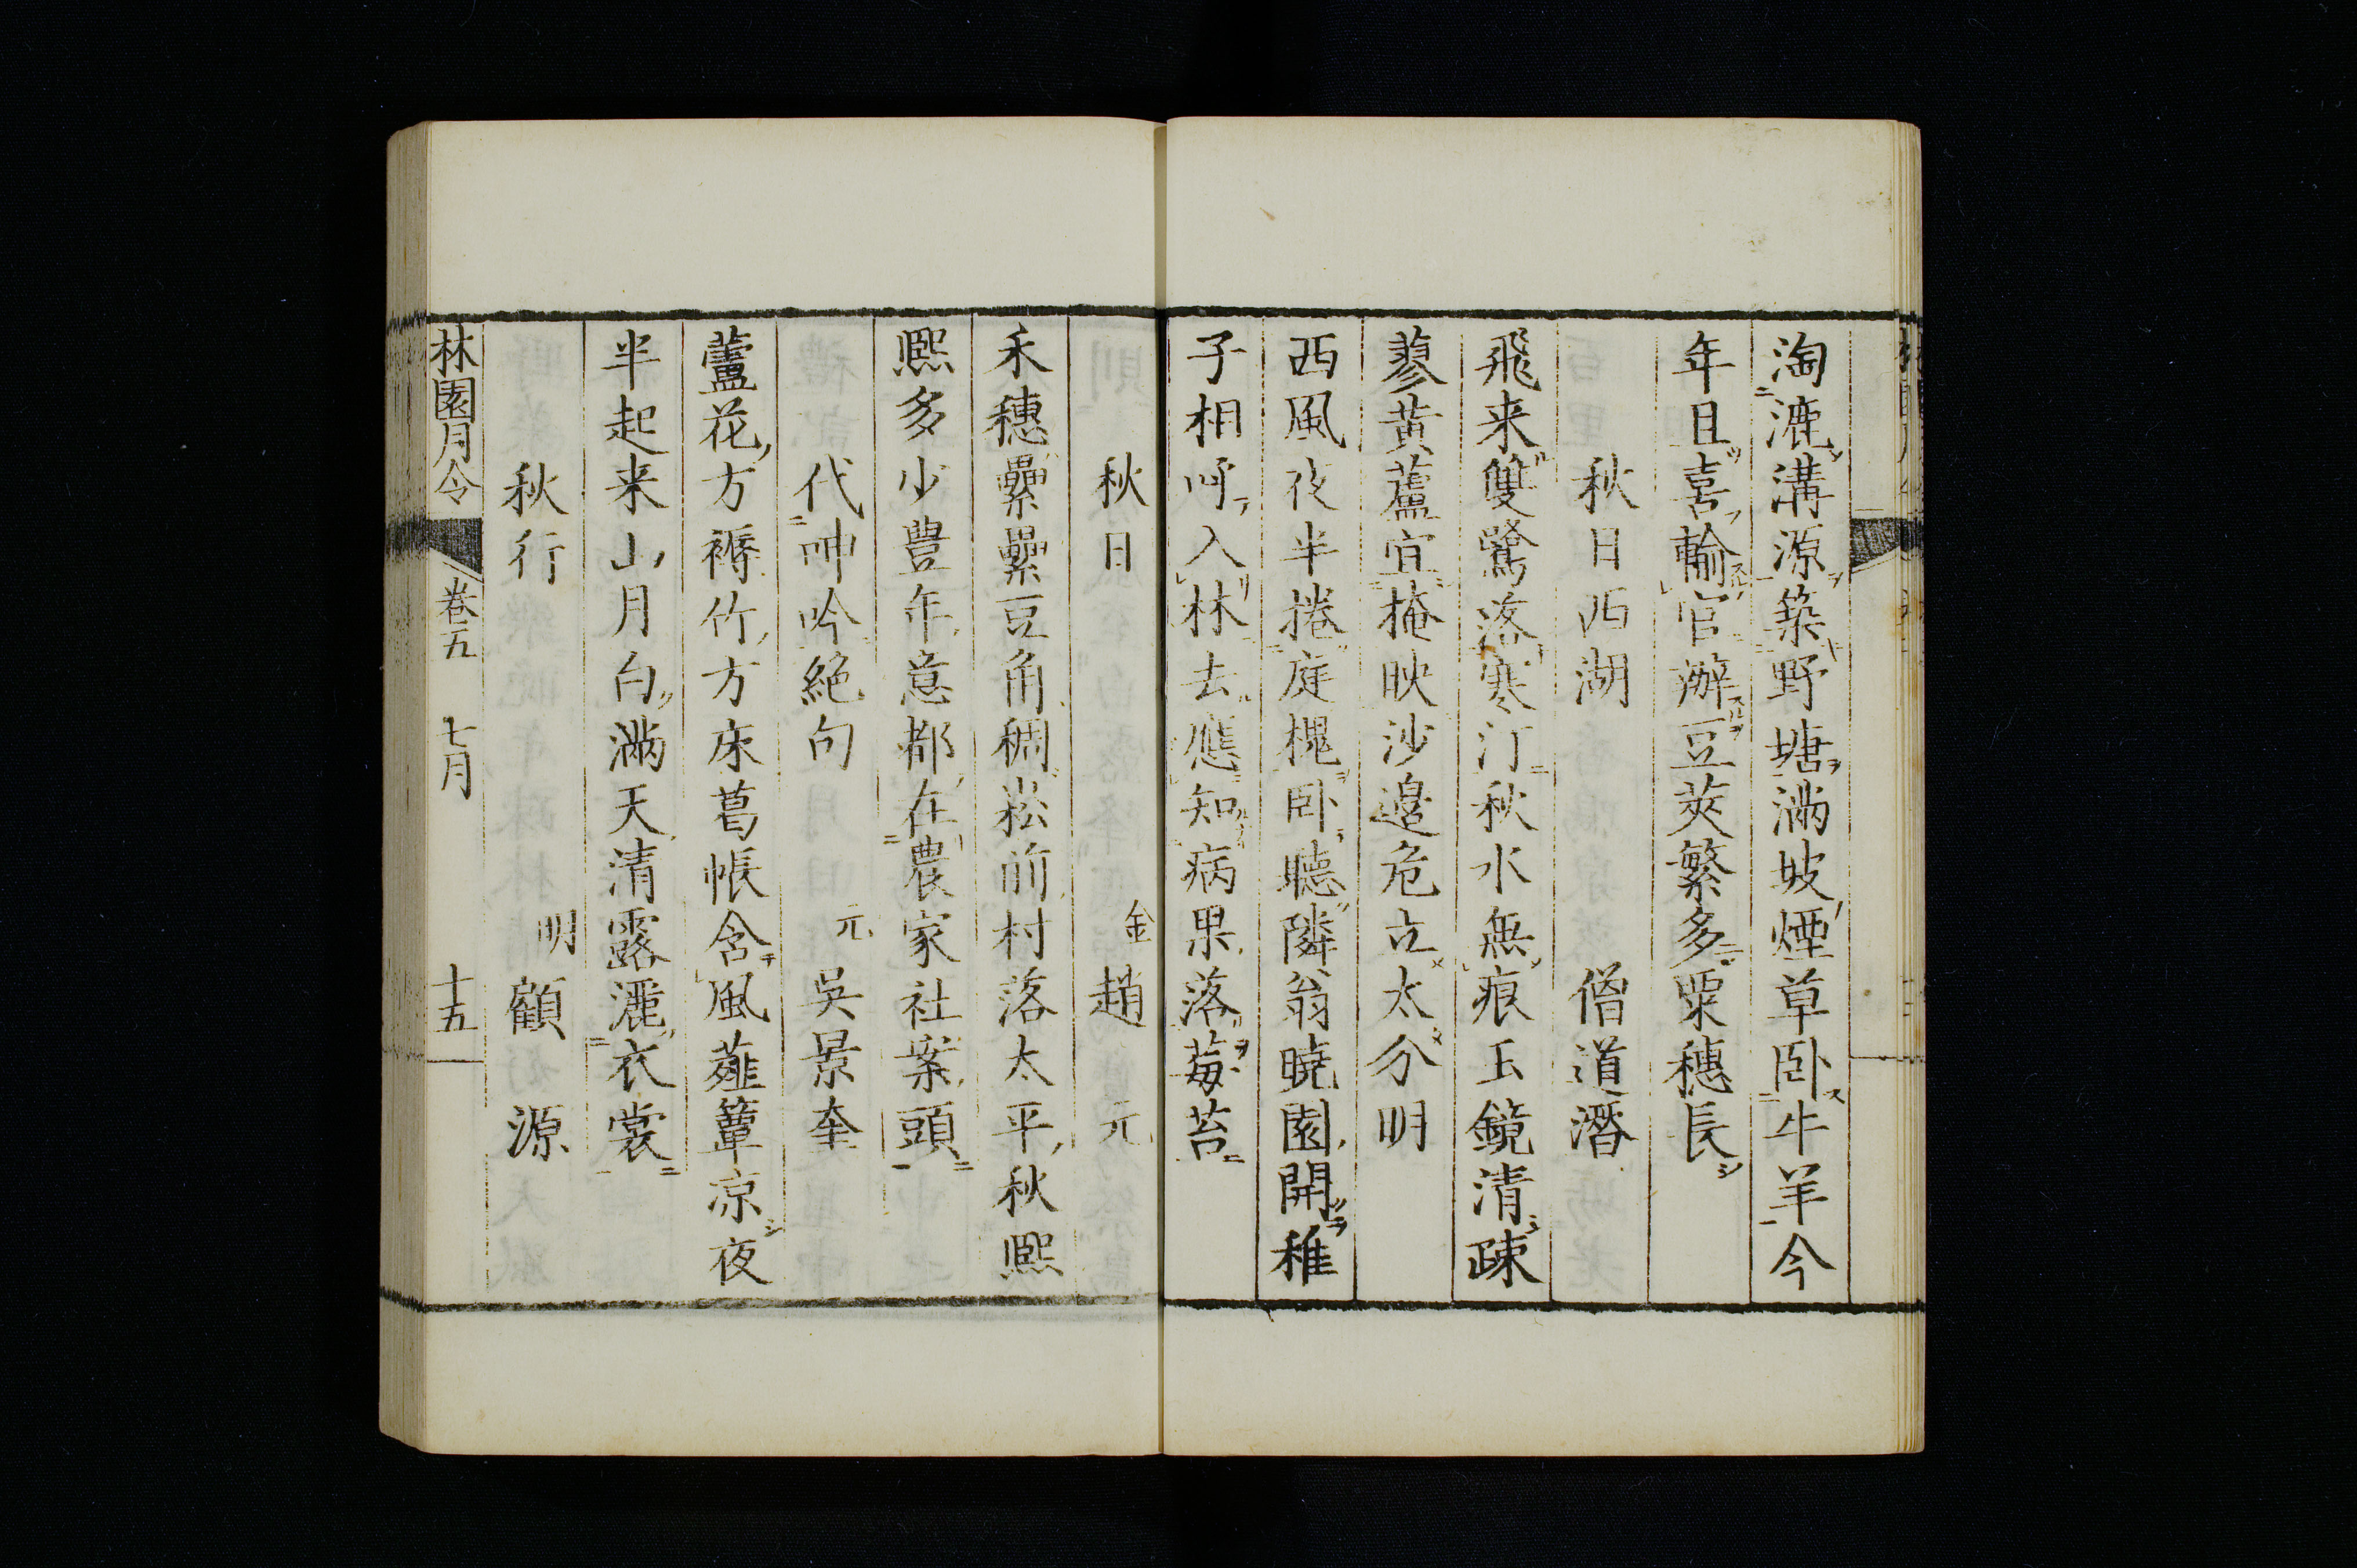 淘漉溝源築野塘満坡煙草卧牛羊今
年且喜輸官辦豆莢繁多粟穗長
秋日西湖 僧道潛
飛来雙鷺落寒汀秋水無痕玉鏡清疎
蓼黄蘆宜掩映沙邉危立太分明
西風夜半捲庭槐卧聴隣翁曉園開稚
子相呼入林去應知病果落莓苔
秋日 金 趙元
禾穗纍纍豆角稠崧前村落太平秋熙
熙多少豊年意都在農家社案頭
代呻吟絶句 元 吳景奎
蘆花方褥竹方床葛帳含風薤簟凉夜
半起来山月白滿天清露灑衣裳
秋行 明 顧源
林園月令 卷五 七月 十五